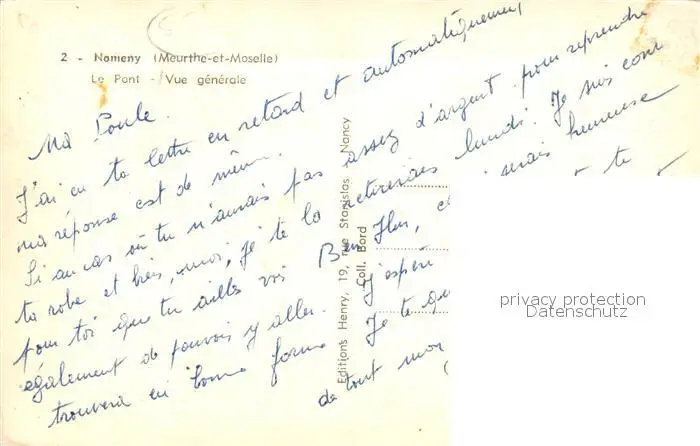 2 - Nomeny (Meurthe-et-Moselle)
Le Pont - Vue générale
Ma Poule.
J'ai eu ta lettre en retard et automatiquement
ma réponse est de même.
Si au cas où tu n'aurais pas assez d'argent pour reprendre
ta robe et bien, moi, je te la retirerais lundi. Je suis
pour toi que tu ailles voir Ben Hur, serais heureuse
également de pouvoir y aller. J'espère te
trouvera en bonne forme Je te
de tout mon
Editions Henry, 19, rue Stanislas - Nancy
Coll. Bord
privacy protection
Datenschutz